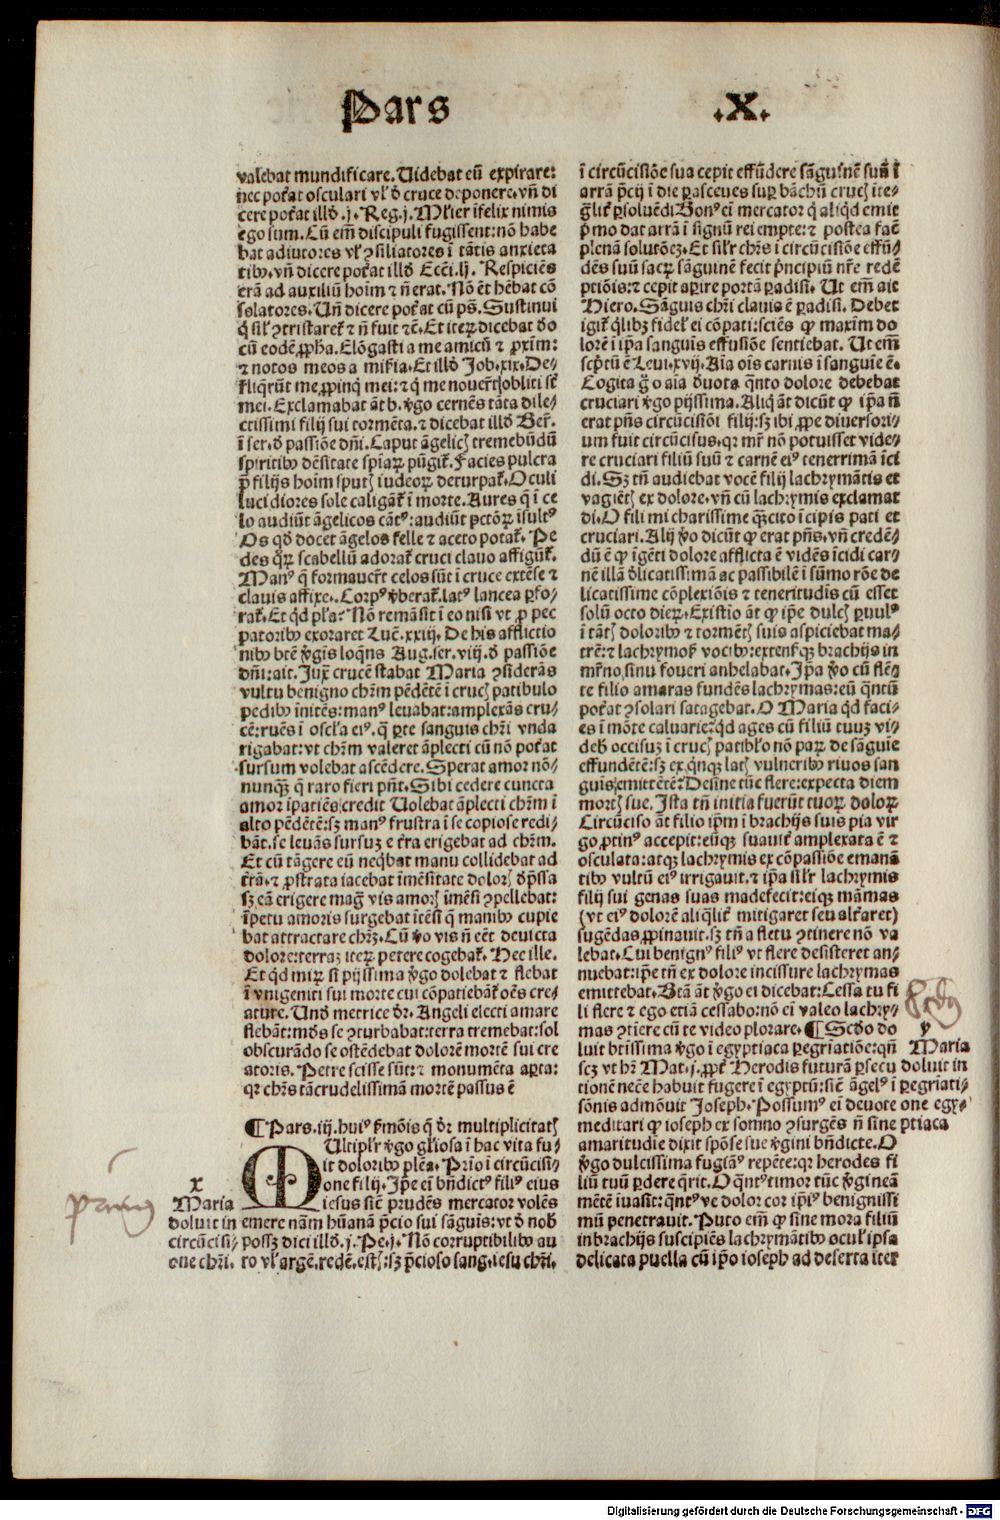 Pars .X.
valebat mundificare. Uidebat eū expirare:
nec poťat osculari vł ď cruce deponere. vñ di
cere poťat illď .j. Reg. j. Mľier īfelix nimis
ego sum. Cū em̄ discipuli fugissent: nō habe
bat adiutores vł ꝯsiliatores ī tātis anxieta
tibꝰ. vñ dicere poťat illď Ecci. lj. Respiciēs
erā ad auxiliū hoīm ⁊ ñ erat. Nō ēt hēbat cō
solatores. Uñ dicere poťat cū ps̄. Sustinui
q̇ sił ꝯtristareť ⁊ ñ fuit ⁊c̄. Et iteꝝ dicebat ďo
cū eodē ꝓpħa. Elōgasti a me amicū ⁊ ꝓxīm:
⁊ notos meos a miſia. Et illď Job. xix. De⸗
reliq̇rūt me ꝓpinq̇ mei: ⁊ q̇ me nouerāt obliti sť
mei. Exclamabat āt b. v̇go cernēs tāta dile⸗
ctissimi filij sui tormēta. ⁊ dicebat illď Beř.
ī ser. ď passiōe dñi. Caput āgelicꝭ tremebūdū
spiritibꝰ dēsitate spīaꝝ pūgiť. Facies pulcra
p̄ filijs hoīm sputꝭ iudeoꝝ deturpať. Oculi
lucidiores sole caligāť ī morte. Aures q̄ ī ce
lo audiūt āgelicos cātꝰ: audiūt pctōꝝ īsultꝰ
Os qď docet āgelos felle ⁊ aceto potať. Pe
des q̇ꝝ scabellū adorať cruci clauo affigūť.
Manꝰ q̄ formauerūt celos sūt ī cruce extēse ⁊
clauis affixe. Corpꝰ v̇berať. latꝰ lancea ꝑfo⸗
rať. Et qď pła? Nō remāsit ī eo nisi vt ꝓ pec
patoribꝰ exoraret Luē. xxiij. De his afflictio
nibꝰ btē v̇gīs loq̄ns Aug. ser. viij. ď passiōe
dñi: ait. Jux̄ crucē stabat Maria ꝯsiderās
vultu benigno chr̄m pēdētē ī crucꝭ patibulo
pedibꝰ īnitēs: manꝰ leuabat: amplexās cru⸗
cē: ruēs ī oscła eiꝰ. q̄ ꝑte sanguis chr̄i vnda
rigabat: vt chr̄m valeret āplecti cū nō poťat
sursum volebat ascēdere. Sperat amor nō⸗
nunq̄ꝫ q̄ raro fieri pñt. Sibi cedere cuncta
amor īpatiēs credit Uolebat āplecti chr̄m ī
alto pēdētē: sꝫ manꝰ frustra ī se copiose redi⸗
bāt. se leuās sursuꝫ e ťra erigebat ad chr̄m.
Et cū tāgere eū neq̇bat manu collidebat ad
ťrā. ⁊ ꝓstrata iacebat īmēsitate dolorꝭ ďp̄ssa
sꝫ eā erigere maḡ vis amorꝭ īmēsi ꝯpellebat:
īpetu amoris surgebat ītēsi q̄ manibꝰ cupie
bat attractare chr̄ꝫ. Cū v̇o vis ñ eēt deuicta
dolore: terraꝫ iteꝝ petere cogebať. Hec ille.
Et qď miꝝ si pijssima v̇go dolebat ⁊ flebat
ī vnigeniti sui morte cui cōpatiebāť oēs cre⸗
ature. Unď metrice ďr. Angeli electi amare
flebāt: mōs se ꝯturbabat: terra tremebat: sol
obscurādo se ostēdebat dolorē mortē sui cre
atoris. Petre scisse sūt: ⁊ monumēta aꝑta:
qr chr̄s tā crudelissimā mortē passus ē
¶ Pars. iij. huiꝰ ẜmōis q̄ ďr multiplicitatꝭ
MUltipłr v̇go głiosa ī hac vita fu⸗
it doloribꝰ plēa. Prīo ī circūcisi⸗
one filij. Jpē eī bñdictꝰ filiꝰ eius
iesus siē prudēs mercator volēs
emere nām hūanā p̄cio sui sāguīs: vt ď nob̄
possꝫ dici illď. j. Pe. j. Nō corruptibilibꝰ au
ro vł argē. redē. estꝭ: sꝫ p̄cioso sang. iesu chr̄i.
x
Maria
doluit in
circūcisi⸗
one chr̄i.
primus
ī circūcisiōe sua cepit effūdere sāguīnē suū ī
arrā p̄cij ī die ꝑasceues suꝑ bāchū crucꝭ īte⸗
g̈liť ꝑsoluēdi Bonꝰ eī mercator q̇ aliq̇d emit
p̄mo dat arrā ī signū rei empte: ⁊ postea facē
plenā solutōeꝫ. Et siłr chr̄s ī circūcisiōe effū⸗
dēs suū sacꝝ sāguinē fecit p̄ncipiū nr̄e redē
ptiōis: ⁊ cepit aꝑire portā ꝑadisi. Ut em̄ ait
Hiero. Sāguis chr̄i clauis ē ꝑadisi. Debet
igiť q̇libꝫ fideł ei cōpati: sciēs ꝙ maxīm do
lorē ī ip̄a sanguīs effusiōe sentiebat. Ut em̄
scp̄tū ē Leui. xvij. Aīa oīs carnis ī sanguīe ē.
Cogita g̊ o aīa ďuota q̄nto dolore debebat
cruciari v̇go pijssima. Aliq̇ āt dicūt ꝙ ip̄a ñ
erat pñs circūcisiōi filij: sꝫ ibi ꝓpe diuersori⸗
um fuit circūcisus. qr mr̄ nō potuisset vide⸗
re cruciari filiū suū ⁊ carnē eiꝰ tenerrimā īci
di. Sꝫ tñ audiebat vocē filij lachrymātis et
vagiētꝭ ex dolore. vñ cū lachrymis exclamat
di. O fili mi charissime q̄ꝫcito īcipis pati et
cruciari. Alij v̇o dicūt ꝙ erat pñs. vñ credē⸗
dū ē ꝙ īgēti dolore afflicta ē vidēs īcidi car⸗
nē illā ďlicatissimā ac passibilē ī sūmo rōe de
licatissime cōplexiōis ⁊ teneritudīs cū esset
solū octo dieꝝ. Existīo āt ꝙ ip̄e dulcꝭ ꝑuulꝰ
ī tātꝭ doloribꝰ ⁊ tormētꝭ suis aspiciebat ma⸗
trē: ⁊ lachrymoſ vocibꝰ: extensiſqꝫ brachijs in
mr̄no sinu foueri anhelabat. Jp̄a v̇o cū flē⸗
te filio amaras fundēs lachrymas: eū q̄ntū
poťat ꝯsolari satagebat. O Maria qď faci⸗
es ī mōte caluarie: qď ages cū filiū tuuꝫ vi⸗
deb̄ occisuꝫ ī crucꝭ patibło nō paꝝ de sāguīe
effundētē: sꝫ ex q̇nqꝫ latꝭ vulneribꝰ riuos san
guis emittētē? Desine tūc flere: expecta diem
mortꝭ sue. Jsta tñ initia fuerūt tuoꝝ doloꝝ
Circūciso āt filio ip̄m ī brachijs suis pia vir
go ꝓtinꝰ accepit: eūqꝫ suauiť amplexata ē ⁊
osculata: atqꝫ lachrymis ex cōpassiōe emanā
tibꝰ vultū eiꝰ irrigauit. ⁊ ip̄a siłr lachrymis
filij sui genas suas madefecit: eiqꝫ māmas
(vt eiꝰ dolorē aliq̇liť mitigaret seu alťaret)
sugēdas ꝓpinauit. sꝫ tñ a fletu ꝯtinere nō va
lebat. Cui benignꝰ filiꝰ vt flere desisteret an⸗
nuebat: ip̄e tñ ex dolore incissure lachrymas
emittebat. Btā āt v̇go ei dicebat: Cessa tu fi
li flere ⁊ ego etiā cessabo: nō eī valeo lachry⸗
mas ꝯtīere cū te video plorare. ¶ Scďo do
luit btissima v̇go ī egyptiaca ꝑegriatiōe: qñ
scꝫ vt hr̄ Mat. j. ꝓpť Herodis futurā ꝑsecu
tionē necē habuit fugere ī egyptū: siē āgelꝰ ī
sōnis admōuit Joseph. Possumꝰ eī deuote
meditari ꝙ ioseph ex somno ꝯsurgēs ñ sine
amaritudīe dixit spōse sue v̇gini bñdicte. O
v̇go dulcissima fugiāꝰ repēte: qr herodes fi
liū tuū ꝑdere q̇rit. O q̄ntꝰ timor tūc v̇gineā
mētē iuasit: q̄ntꝰ ve dolor cor ip̄iꝰ benignissi
mū penetrauit. Puto em̄ ꝙ sine mora filiū
in brachijs suscipiēs lachrymātibꝰ oculꝭ ipsa
delicata puella cū ip̄o ioseph ad deserta iter
y
Maria
doluit in
ꝑegriati⸗
one egy⸗
ptiaca
Digitalisierung gefördert durch die Deutsche Forschungsgemeinschaft - DFG